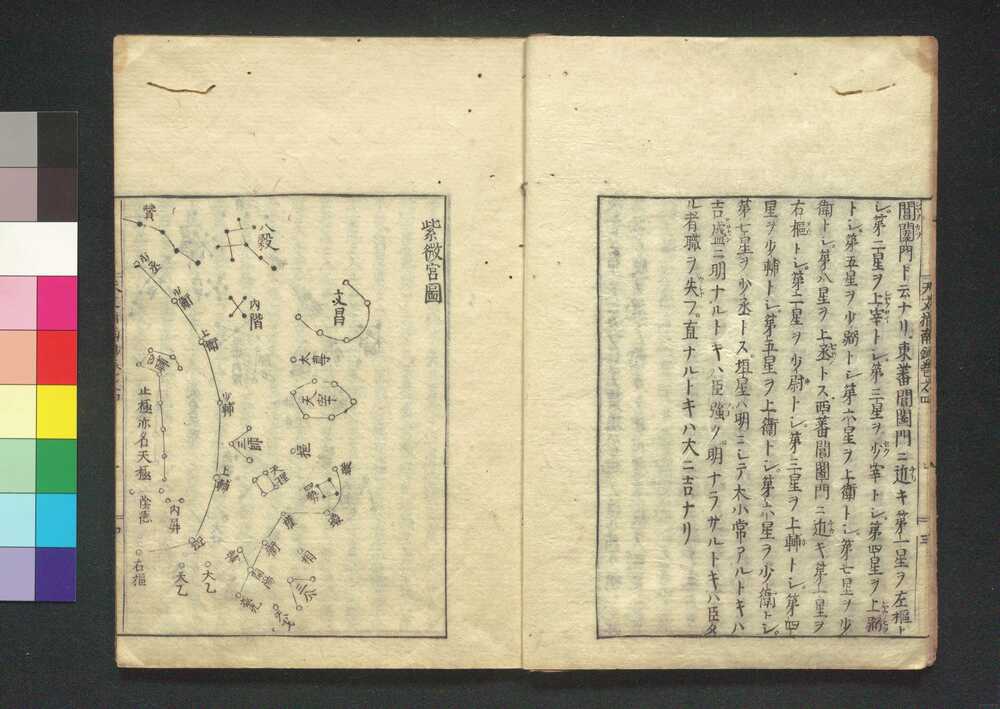 閶闔門ト云ナリ東蕃閶闔門ニ近キ第一星ヲ左樞ト
シ第二星ヲ上宰トシ第三星ヲ少宰トシ第四星ヲ上弼
トシ第五星ヲ少弼トシ第六星ヲ上衛トシ第七星ヲ少
衛トシ第八星ヲ上丞トス西蕃閶闔門ニ近キ第一星ヲ
右樞トシ第二星ヲ少尉トシ第三星ヲ上輔トシ第四
星ヲ少輔トシ第五星ヲ上衛トシ第六星ヲ少衛トシ
第七星ヲ少丞トス垣星ハ明ニシテ大小常アルトキハ
吉盛ニ明ナルトキハ臣強ク明ナラサルトキハ臣タ
ル者職ヲ失フ直ナルトキハ大ニ吉ナリ
天文指南鈔巻之四
三
紫微宮圖
文昌
八穀
内階
太尊
天牢
三師
天理
相
三公
天戈
少丞
少衛
上衛
少輔
上輔
内厨
大乙
天乙
北極亦名天極
陰徳
右樞